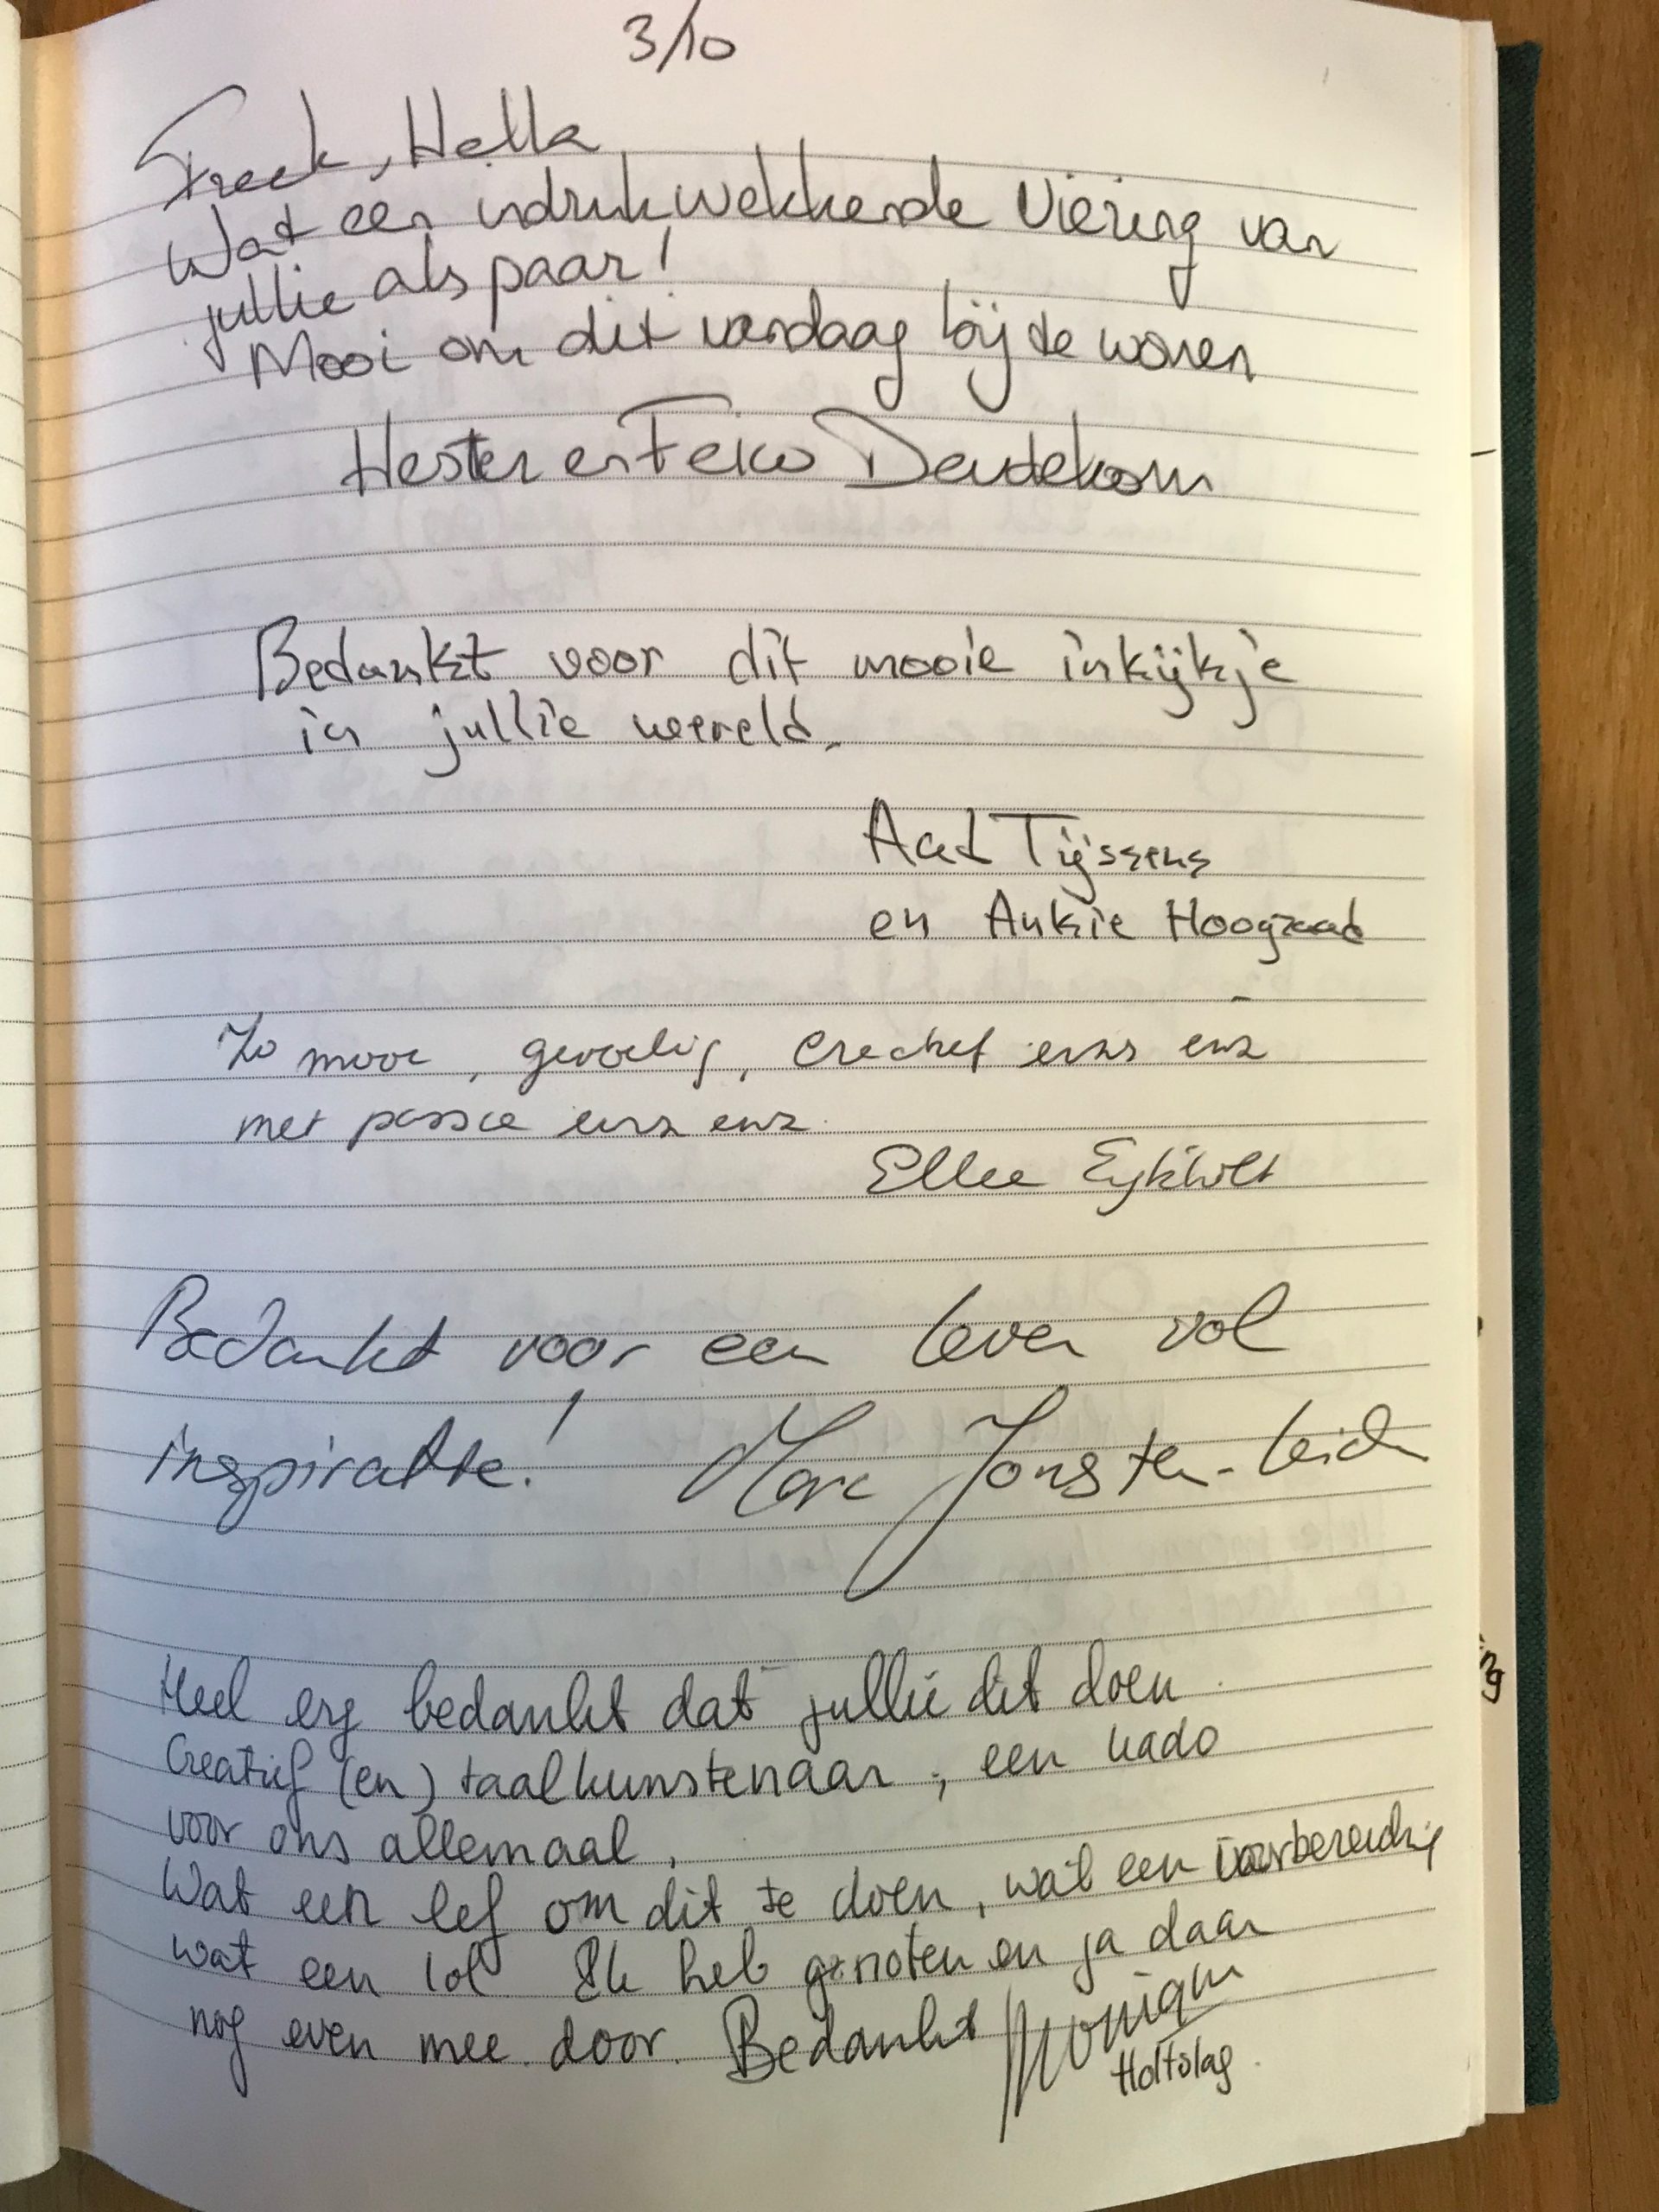 3/10
Freek, Hella
Wat een indrukwekkende viering van
jullie als paar!
Mooi om dit vandaag bij te wonen
Hester en Feico Deutekom
Bedankt voor dit mooie inkijkje
in jullie wereld.
Aad Tijssens
en Ankie Hoograad
Zo mooi, gevoelig, creatief enz enz
met passie enz enz.
Ellee Eykholt
Bedankt voor een leven vol
inspiratie! Marc Jongsten-
Heel erg bedankt dat jullie dit doen.
Creatief (en) taalkunstenaar, een kado
voor ons allemaal,
Wat een lef om dit te doen, wat een voorbereiding
wat een lol Ik heb genoten en ja daar
nog even mee door. Bedankt Monique
Holtslag.